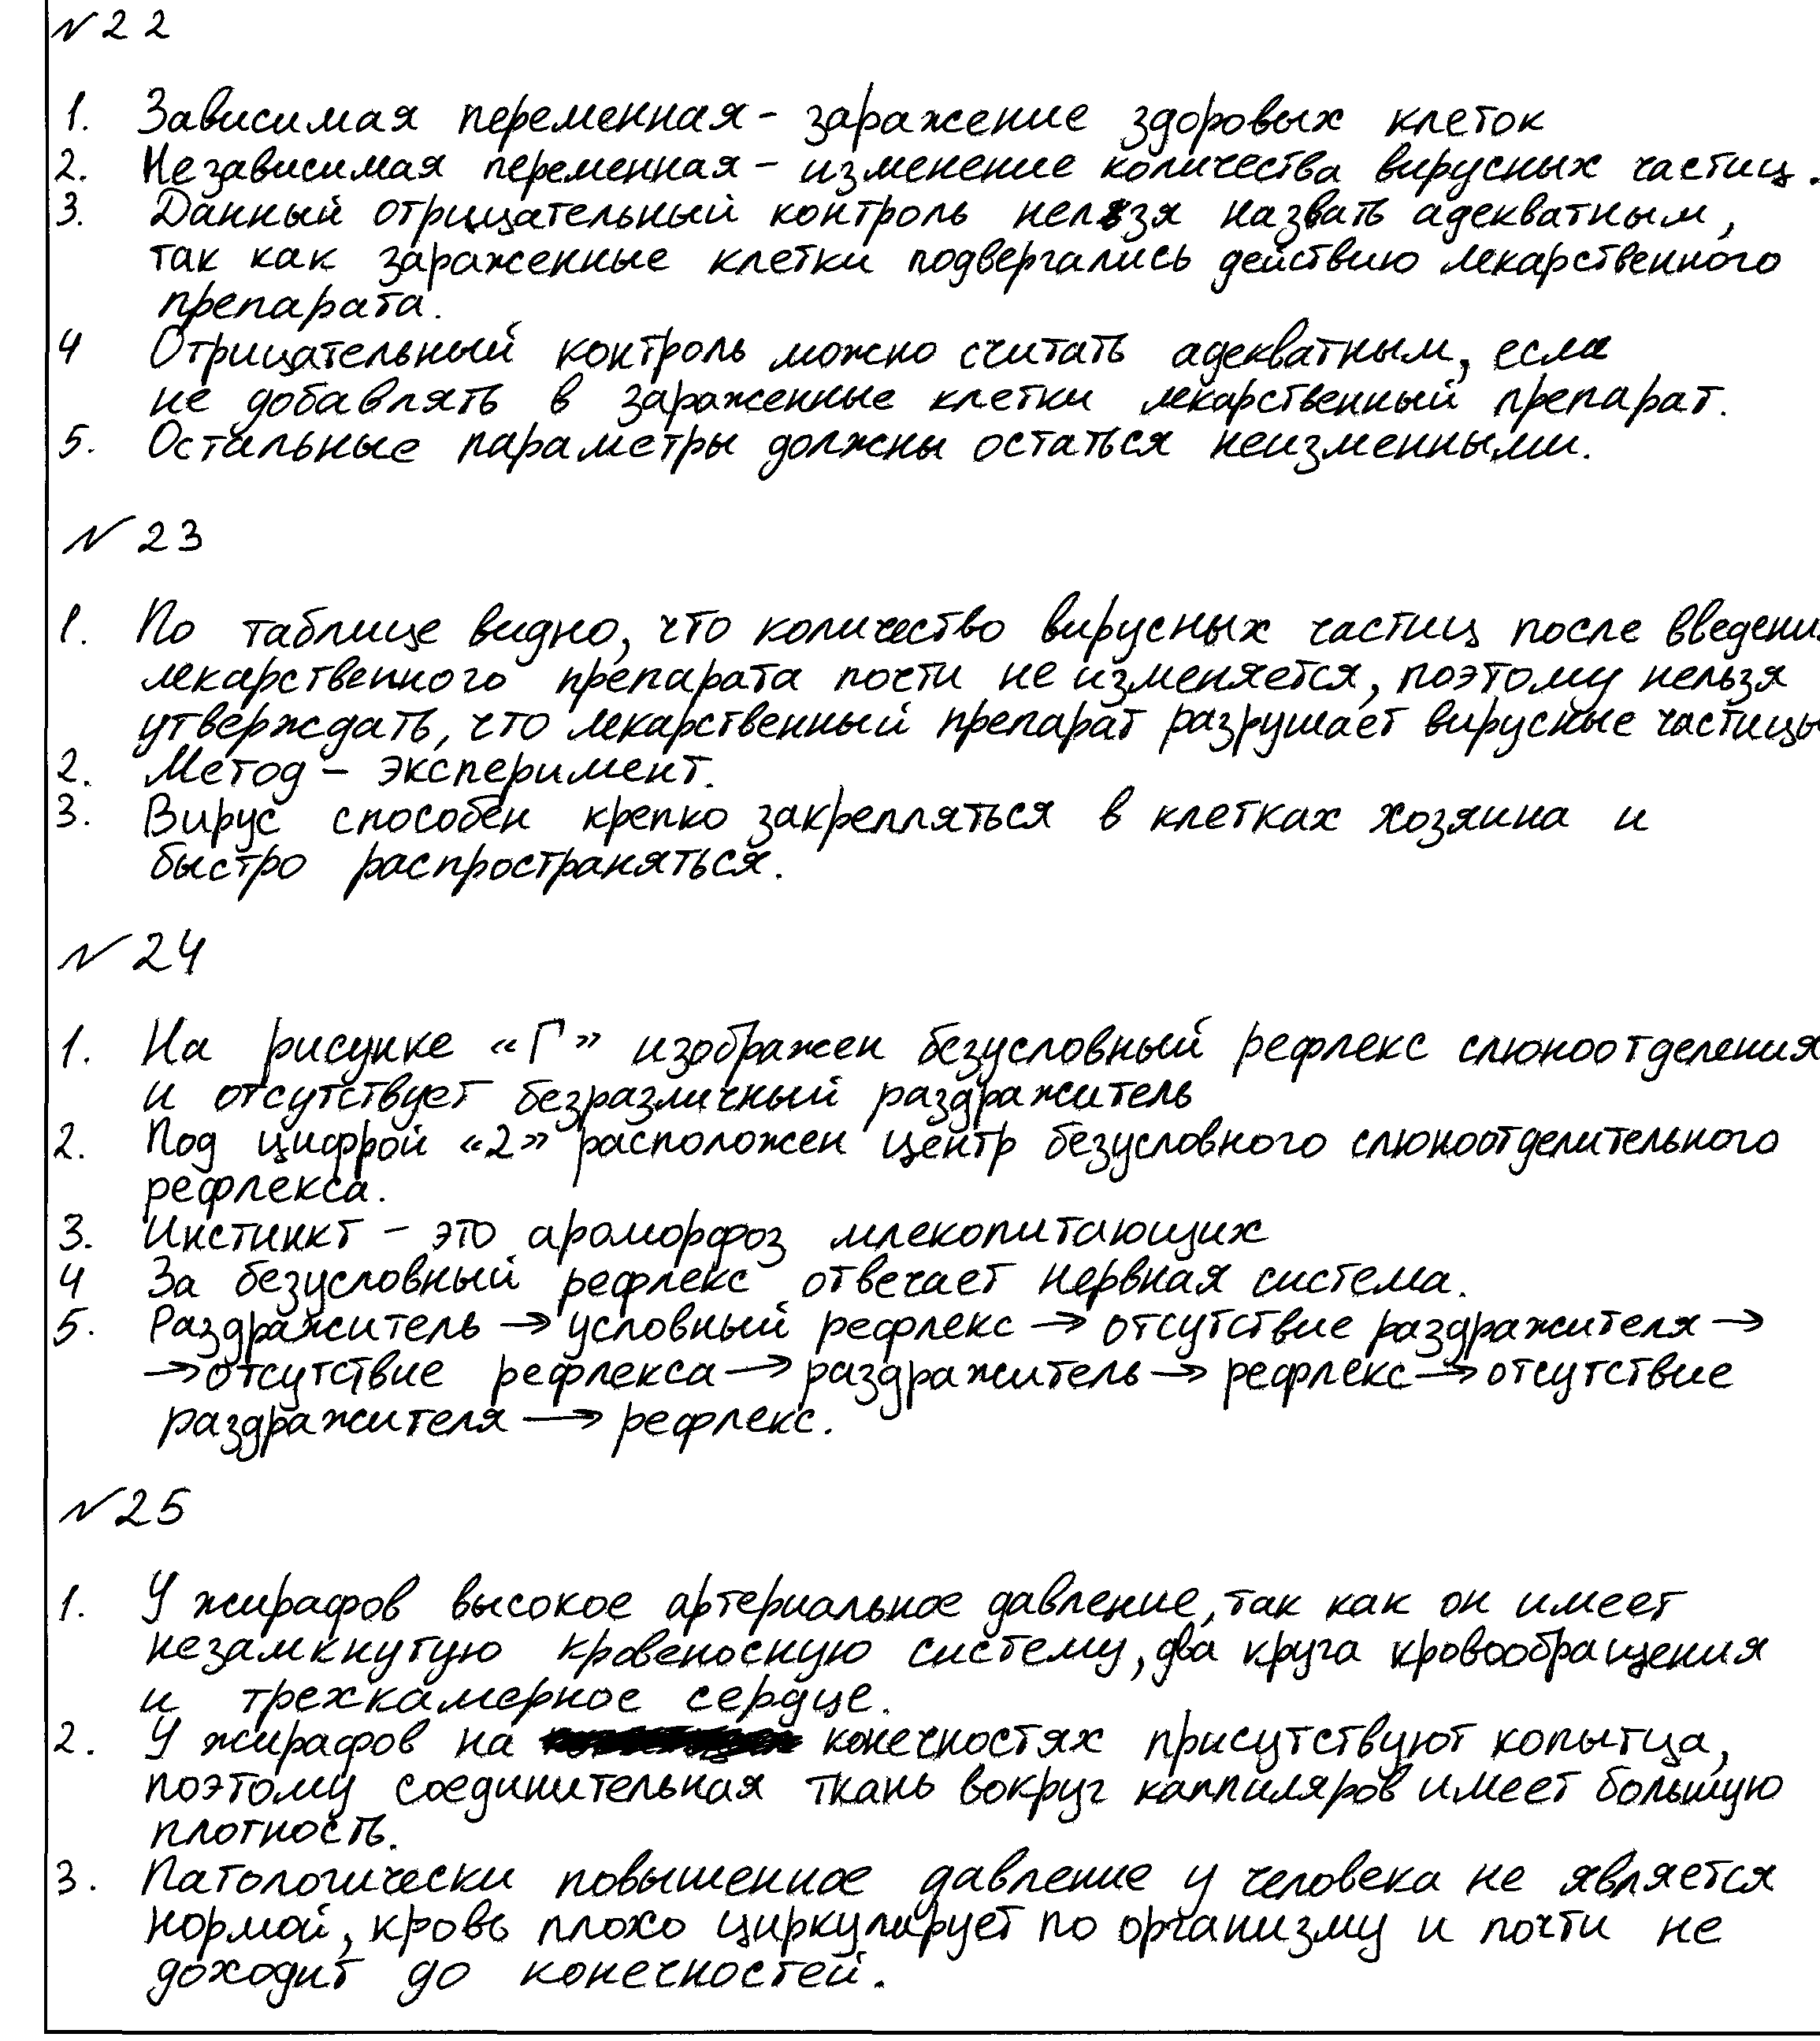 №22
1. Зависимая переменная - заражение здоровых клеток
2. Независимая переменная - изменение количества вирусных частиц.
3. Данный отрицательный контроль нельзя назвать адекватным,
так как зараженные клетки подвергались действию лекарственного
препарата.
4 Отрицательный контроль можно считать адекватным, если
не добавлять в зараженные клетки лекарственный препарат.
5. Остальные параметры должны остаться неизменными.
№23
1. По таблице видно, что количество вирусных частиц после введени
лекарственного препарата почти не изменяется, поэтому нельзя
утверждать, что лекарственный препарат разрушает вирусные частицы
2. Метод - эксперимент.
3. Вирус способен крепко закрепляться в клетках хозяина и
быстро распространяться.
№24
1. На рисунке «Г» изображен безусловный рефлекс слюноотделения
и отсутствует безразличный раздражитель
2. Под цифрой «2» расположен центр безусловного слюноотделительного
рефлекса.
3. Инстинкт - это ароморфоз млекопитающих
4 За безусловный рефлекс отвечает нервная система.
5. Раздражитель → условный рефлекс → отсутствие раздражителя →
→ отсутствие рефлекса → раздражитель → рефлекс → отсутствие
раздражителя → рефлекс.
№25
1. У жирафов высокое артериальное давление, так как он имеет
незамкнутую кровеносную систему, два круга кровообращения
и трехкамерное сердце.
2. У жирафов на конечностях присутствуют копытца,
поэтому соединительная ткань вокруг каппиляров имеет большую
плотность.
3. Патологически повышенное давление у человека не является
нормой, кровь плохо циркулирует по организму и почти не
доходит до конечностей.